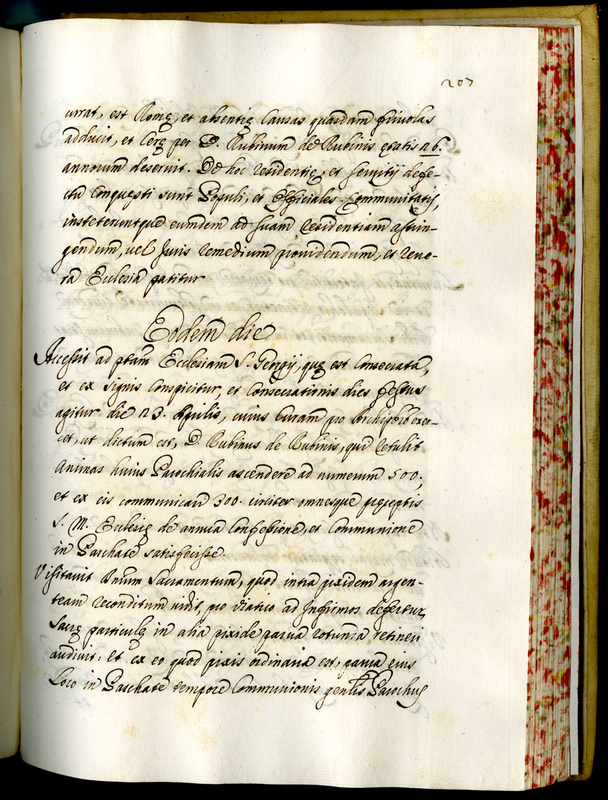 207
currat, est Romę, et absentię causas quasdam friuolas
adducit, et Cerę per D. Rubinum de Rubinis gratis n 6.
annorum deseruit. De hoc residentię, et seruitij defe-
ctu conquesti sunt Populi, et Officiales Communitatis,
insteteruntque eundem ad suam residentiam astrin-
gendum, uel Juris remedium prouidendum, et reue-
ra Ecclesia patitur
Eodem die
Accessit ad ptam Ecclesiam S. Georgij, quę est Consecrata,
et ex signis conspicitur, et Consecrationis dies festus
agitur die n3. Aprilis, cuius Curam pro Archipbro exer-
cet, ut dictum est, D. Rubinus de Rubinis, qui retulit
Animas huius Parochialis ascendere ad numerum 500.,
et ex eis communicari 300. circiter omnesque pręceptis
S. M. Ecclesię de annua Confessione, et Communione
in Paschate satisfecisse.
Visitauit Smum Sacramentum, quod intra pixidem argen-
team reconditum uidit, pro Viatico ad Infirmos defertur,
Sacrę particulę in alia pixide parua rotunda retineri
audiuit. Et ex eo quod pixis ordinaria est parua eius
Loco in Paschate tempore Communionis gentis Parochus